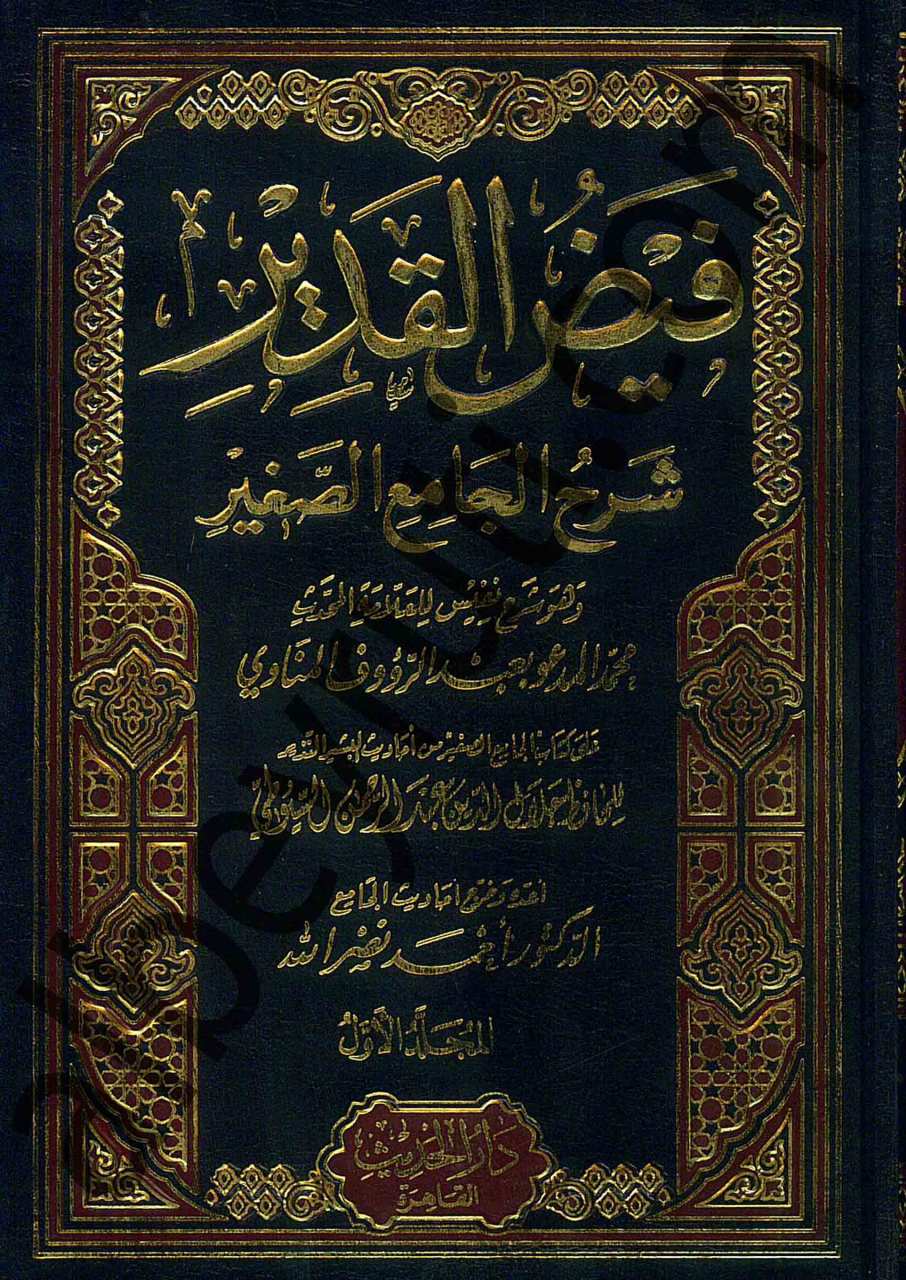 فَيْضُ القَدِيْرِ
شَرْحُ الجَامِعِ الصَّغِيْرِ
وَهُوَ شَرْحٌ نَفِيْسٌ لِلعَلَّامَةِ المُحَدِّثِ
محمّد المدعو بعبد الرؤوف المناوي
عَلَى كتاب الجامع الصغير من أحاديث البشير النذير
للحافظ جلال الدين عبد الرحمن السيوطي
أعده وخرج أحاديث الجامع
الدكتور أحمد نصر الله
المُجَلَّدُ الأَوَّلُ
دَارُ الحَدِيْثِ
القاهرة